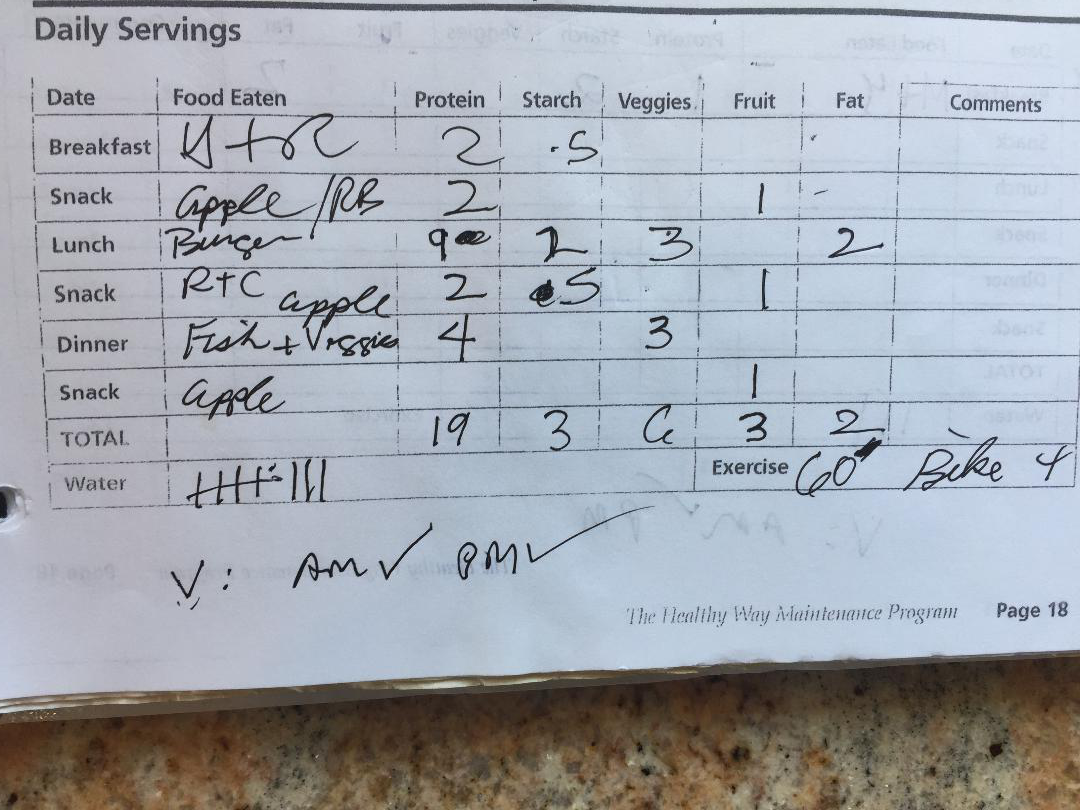 Daily Servings
Date Food Eaten Protein Starch Veggies Fruit Fat Comments
Breakfast Y+C 2 .5
Snack apple/RB 2 1 -
Lunch Burger 9 2 3 2
Snack R+C apple 2 .5 1
Dinner Fish + Veggies 4 3
Snack apple 1
TOTAL 19 3 6 3 2
Water HHt III Exercise 60 Bike 4
V: AM✓ PM✓
The Healthy Way Maintenance Program Page 18